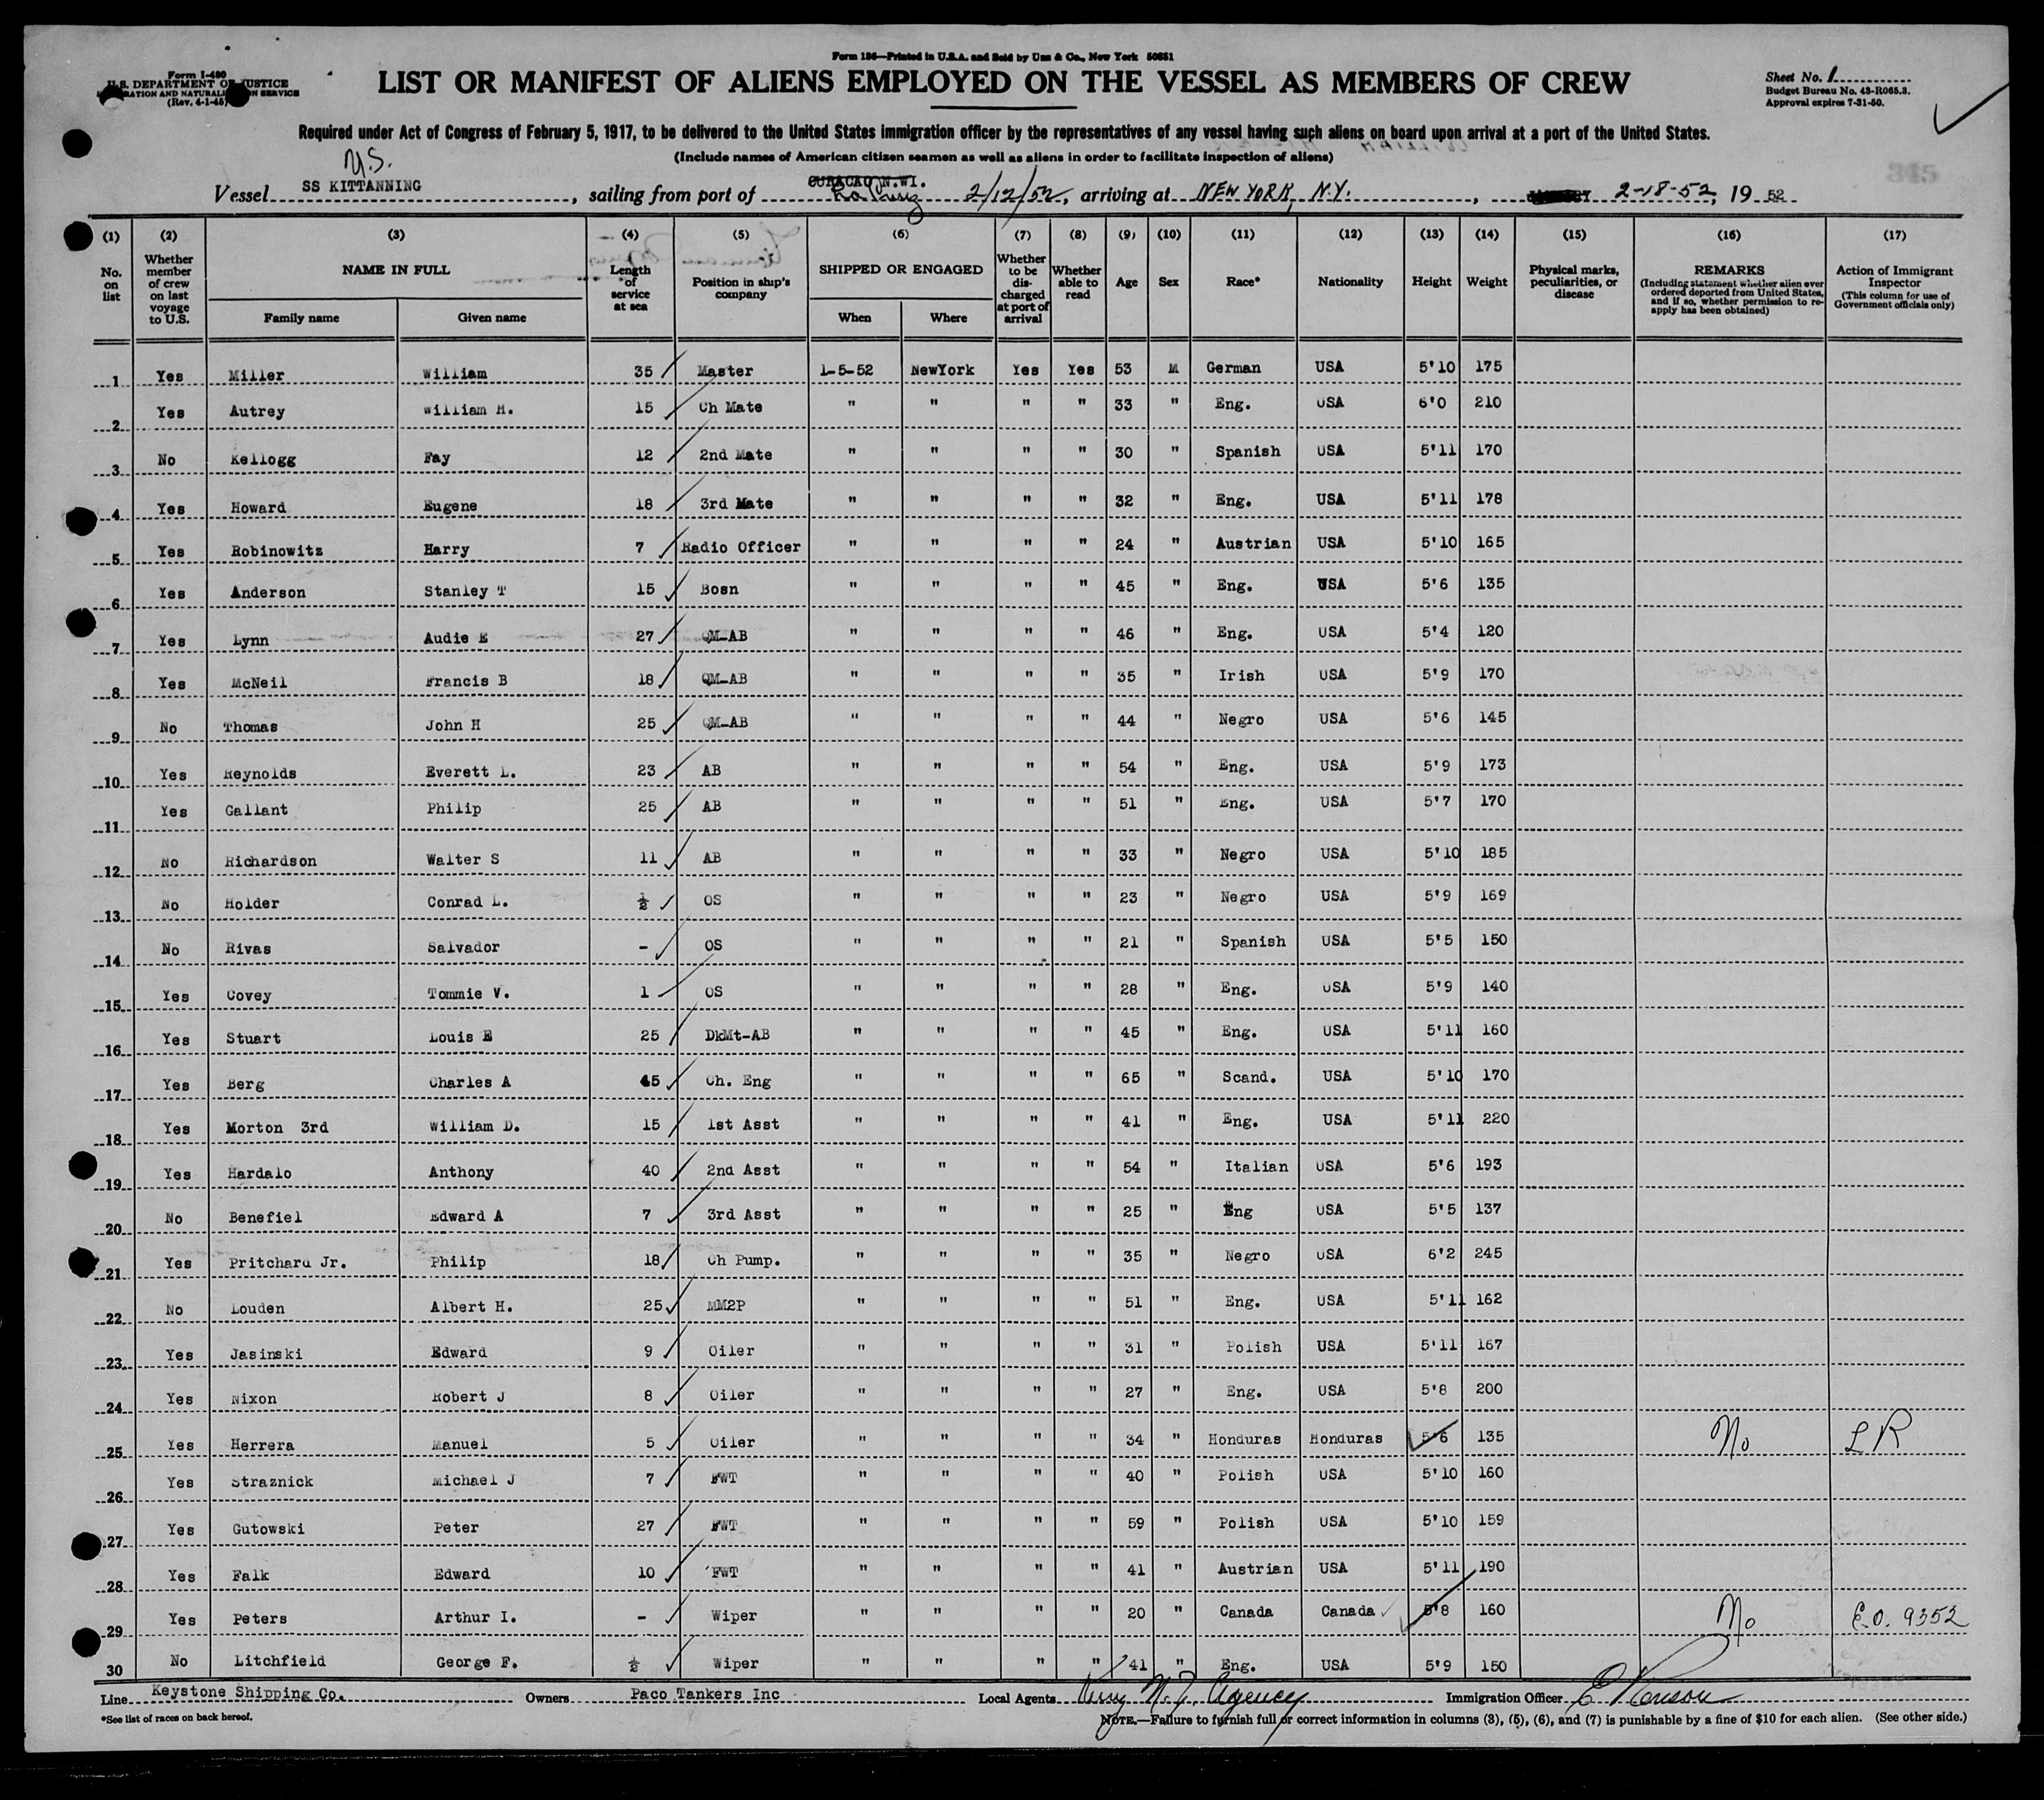 Form 136—Printed in U.S.A. and Sold by Unz & Co., New York 50651
Form I-480
U.S. DEPARTMENT OF JUSTICE
IMMIGRATION AND NATURALIZATION SERVICE
(Rev. 4-1-45)
LIST OR MANIFEST OF ALIENS EMPLOYED ON THE VESSEL AS MEMBERS OF CREW
Sheet No. 1
Budget Bureau No. 43-R065.3.
Approval expires 7-31-50.
Required under Act of Congress of February 5, 1917, to be delivered to the United States immigration officer by the representatives of any vessel having such aliens on board upon arrival at a port of the United States.
(Include names of American citizen seamen as well as aliens in order to facilitate inspection of aliens)
U.S.
Vessel SS KITTANNING, sailing from port of CURACAO N.WI. 2/12/52, arriving at NEW YORK, N.Y., 2-18-52, 19 52
345
(1) (2) (3) (4) (5) (6) (7) (8) (9) (10) (11) (12) (13) (14) (15) (16) (17)
No. on list
Whether member of crew on last voyage to U.S.
NAME IN FULL
Family name Given name
Length of service at sea
Position in ship's company
SHIPPED OR ENGAGED
When Where
Whether to be discharged at port of arrival
Whether able to read
Age Sex Race* Nationality Height Weight
Physical marks, peculiarities, or disease
REMARKS
(Including statement whether alien ever ordered deported from United States, and if so, whether permission to reapply has been obtained)
Action of Immigrant Inspector
(This column for use of Government officials only)
1 Yes Miller William 35 Master 1-5-52 NewYork Yes Yes 53 M German USA 5'10 175
2 Yes Autrey William H. 15 Ch Mate " " " " 33 " Eng. USA 6'0 210
3 No Kellogg Fay 12 2nd Mate " " " " 30 " Spanish USA 5'11 170
4 Yes Howard Eugene 18 3rd Mate " " " " 32 " Eng. USA 5'11 178
5 Yes Robinowitz Harry 7 Radio Officer " " " " 24 " Austrian USA 5'10 165
6 Yes Anderson Stanley T 15 Bosn " " " " 45 " Eng. USA 5'6 135
7 Yes Lynn Audie E 27 QM-AB " " " " 46 " Eng. USA 5'4 120
8 Yes McNeil Francis B 18 QM-AB " " " " 35 " Irish USA 5'9 170
9 No Thomas John H 25 QM-AB " " " " 44 " Negro USA 5'6 145
10 Yes Reynolds Everett L. 23 AB " " " " 54 " Eng. USA 5'9 173
11 Yes Gallant Philip 25 AB " " " " 51 " Eng. USA 5'7 170
12 No Richardson Walter S 11 AB " " " " 33 " Negro USA 5'10 185
13 No Holder Conrad L. ½ OS " " " " 23 " Negro USA 5'9 169
14 No Rivas Salvador - OS " " " " 21 " Spanish USA 5'5 150
15 Yes Covey Tommie V. 1 OS " " " " 28 " Eng. USA 5'9 140
16 Yes Stuart Louis E 25 DkMt-AB " " " " 45 " Eng. USA 5'11 160
17 Yes Berg Charles A 45 Ch. Eng " " " " 65 " Scand. USA 5'10 170
18 Yes Morton 3rd William D. 15 1st Asst " " " " 41 " Eng. USA 5'11 220
19 Yes Hardalo Anthony 40 2nd Asst " " " " 54 " Italian USA 5'6 193
20 No Benefiel Edward A 7 3rd Asst " " " " 25 " Eng USA 5'5 137
21 Yes Pritchard Jr. Philip 18 Ch Pump. " " " " 35 " Negro USA 6'2 245
22 No Louden Albert H. 25 MM2P " " " " 51 " Eng. USA 5'11 162
23 Yes Jasinski Edward 9 Oiler " " " " 31 " Polish USA 5'11 167
24 Yes Nixon Robert J 8 Oiler " " " " 27 " Eng. USA 5'8 200
25 Yes Herrera Manuel 5 Oiler " " " " 34 " Honduras Honduras 5'6 135 No LR
26 Yes Straznick Michael J 7 FWT " " " " 40 " Polish USA 5'10 160
27 Yes Gutowski Peter 27 FWT " " " " 59 " Polish USA 5'10 159
28 Yes Falk Edward 10 FWT " " " " 41 " Austrian USA 5'11 190
29 Yes Peters Arthur I. - Wiper " " " " 20 " Canada Canada 5'8 160 No E.O. 9352
30 No Litchfield George F. ½ Wiper " " " " 41 " Eng. USA 5'9 150
Line Keystone Shipping Co. Owners Paco Tankers Inc Local Agents N. J. Agency Immigration Officer
*See list of races on back hereof.
NOTE.—Failure to furnish full or correct information in columns (3), (5), (6), and (7) is punishable by a fine of $10 for each alien. (See other side.)